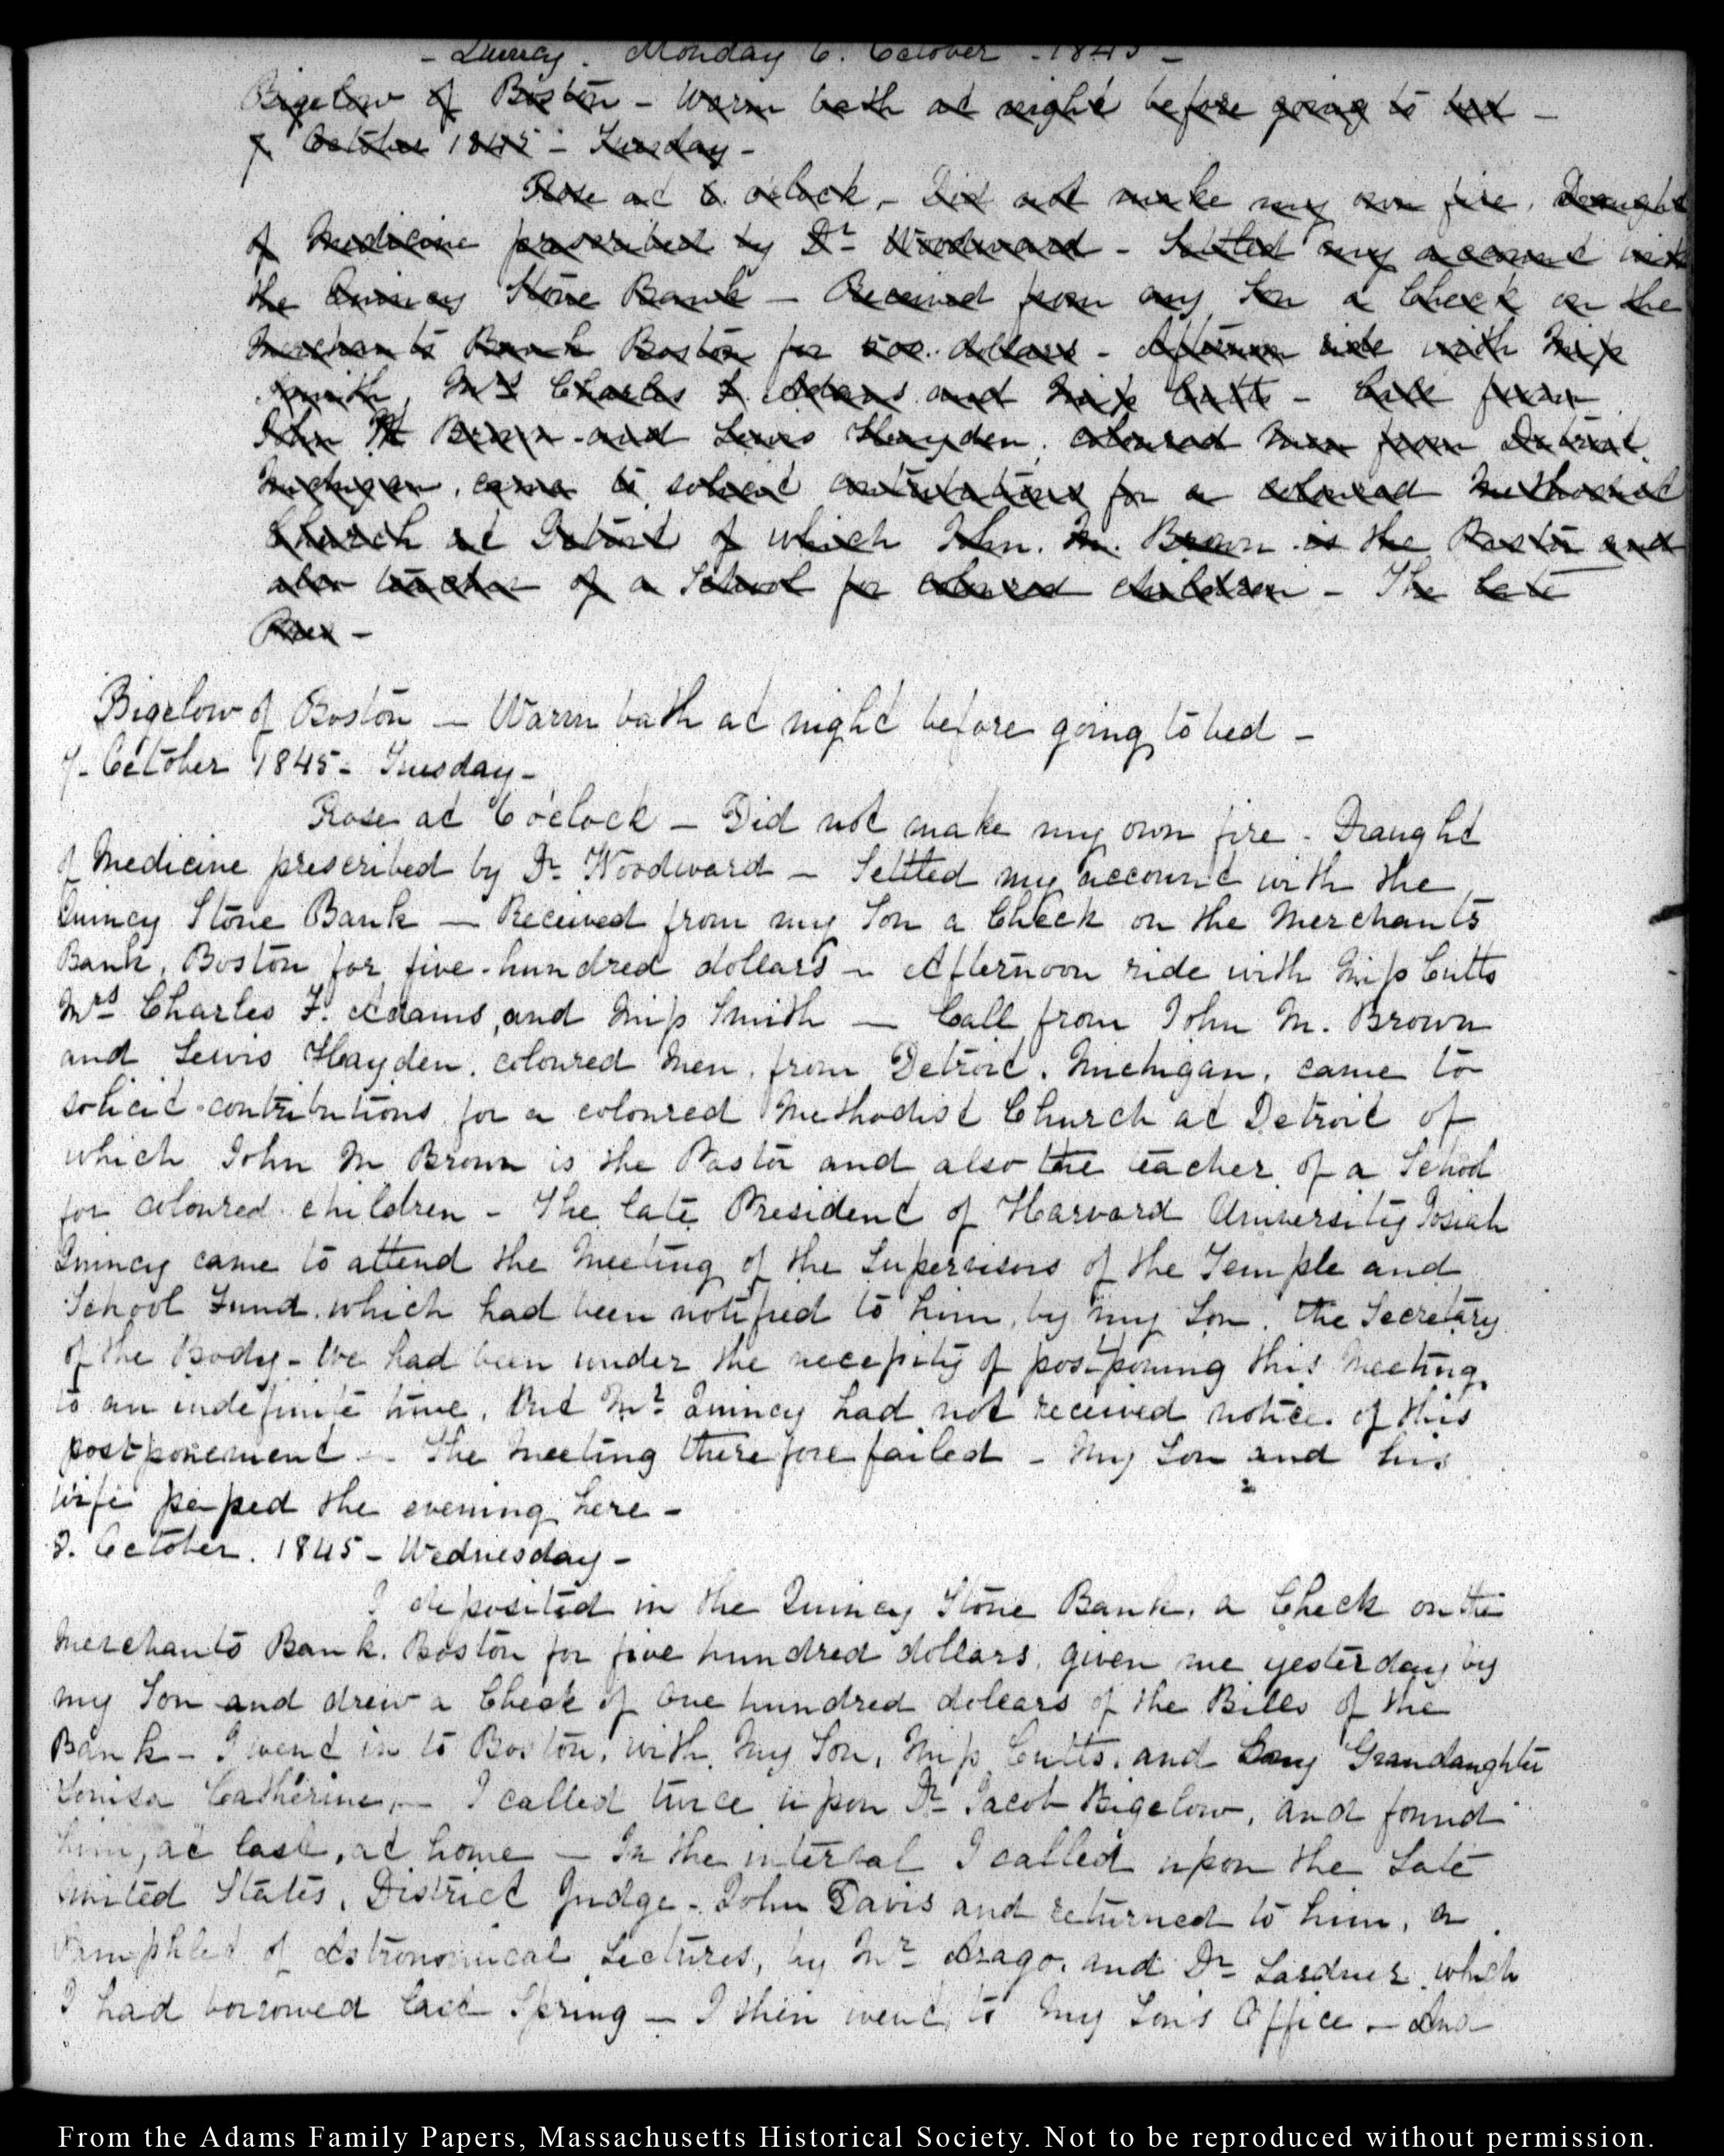 - Quincy. Monday 6. October - 1845 -
Bigelow of Boston - Warm bath at night before going to bed -
7. October 1845 - Tuesday -
Rose at 6. o'clock, - Did not make my own fire. Draught
of Medicine prescribed by Dr Woodward - Settled my account with
the Quincy Stone Bank - Received from my Son a Check on the
Merchants Bank Boston for 500. dollars - Afternoon ride with Miss
Smith, Mrs Charles F. Adams and Miss Cutts - Call from
John M Brown and Lewis Hayden, coloured men from Detroit.
Michigan, came to solicit contributions for a coloured Methodist
Church at Detroit of which John. M. Brown is the Pastor and
also teacher of a School for coloured children - The late
Bigelow of Boston — Warm bath at night before going to bed -
7- October 1845- Tuesday -
Rose at 6 o'clock — Did not make my own fire - Draught
of Medicine prescribed by Dr Woodward — Settled my account with the
Quincy Stone Bank — Received from my Son a Check on the Merchants
Bank, Boston for five-hundred dollars — Afternoon ride with Miss Cutts
Mrs Charles F. Adams, and Miss Smith — Call from John M. Brown
and Lewis Hayden, coloured Men, from Detroit, Michigan, came to
solicit contributions for a coloured Methodist Church at Detroit of
which John M Brown is the Pastor and also the teacher of a School
for coloured children - The late President of Harvard University Josiah
Quincy came to attend the Meeting of the Supervisors of the Temple and
School Fund, which had been notified to him, by my Son, the Secretary
of the Body - We had been under the necessity of postponing this Meeting,
to an indefinite time, But Mr Quincy had not received notice of this
postponement — The Meeting therefore failed - My Son and his
wife passed the evening here -
8. October. 1845 - Wednesday -
I deposited in the Quincy Stone Bank, a Check on the
Merchants Bank. Boston for five hundred dollars, given me yesterday by
my Son and drew a Check of One hundred dollars of the Bills of the
Bank - I went in to Boston, with, My Son, Miss Cutts, and my Grandaughter
Louisa Catherine, — I called twice upon Dr Jacob Bigelow, and found
him, at last, at home — In the interval I called upon the Late
United States, District Judge - John Davis and returned to him, a
Pamphlet of Astronomical Lectures, by Mr Arago, and Dr Lardner, which
I had borrowed last Spring — I then went, to My Son's Office — And
From the Adams Family Papers, Massachusetts Historical Society. Not to be reproduced without permission.